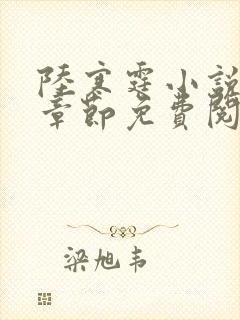 陸寒霆小說
章節免費閱
梁旭韦